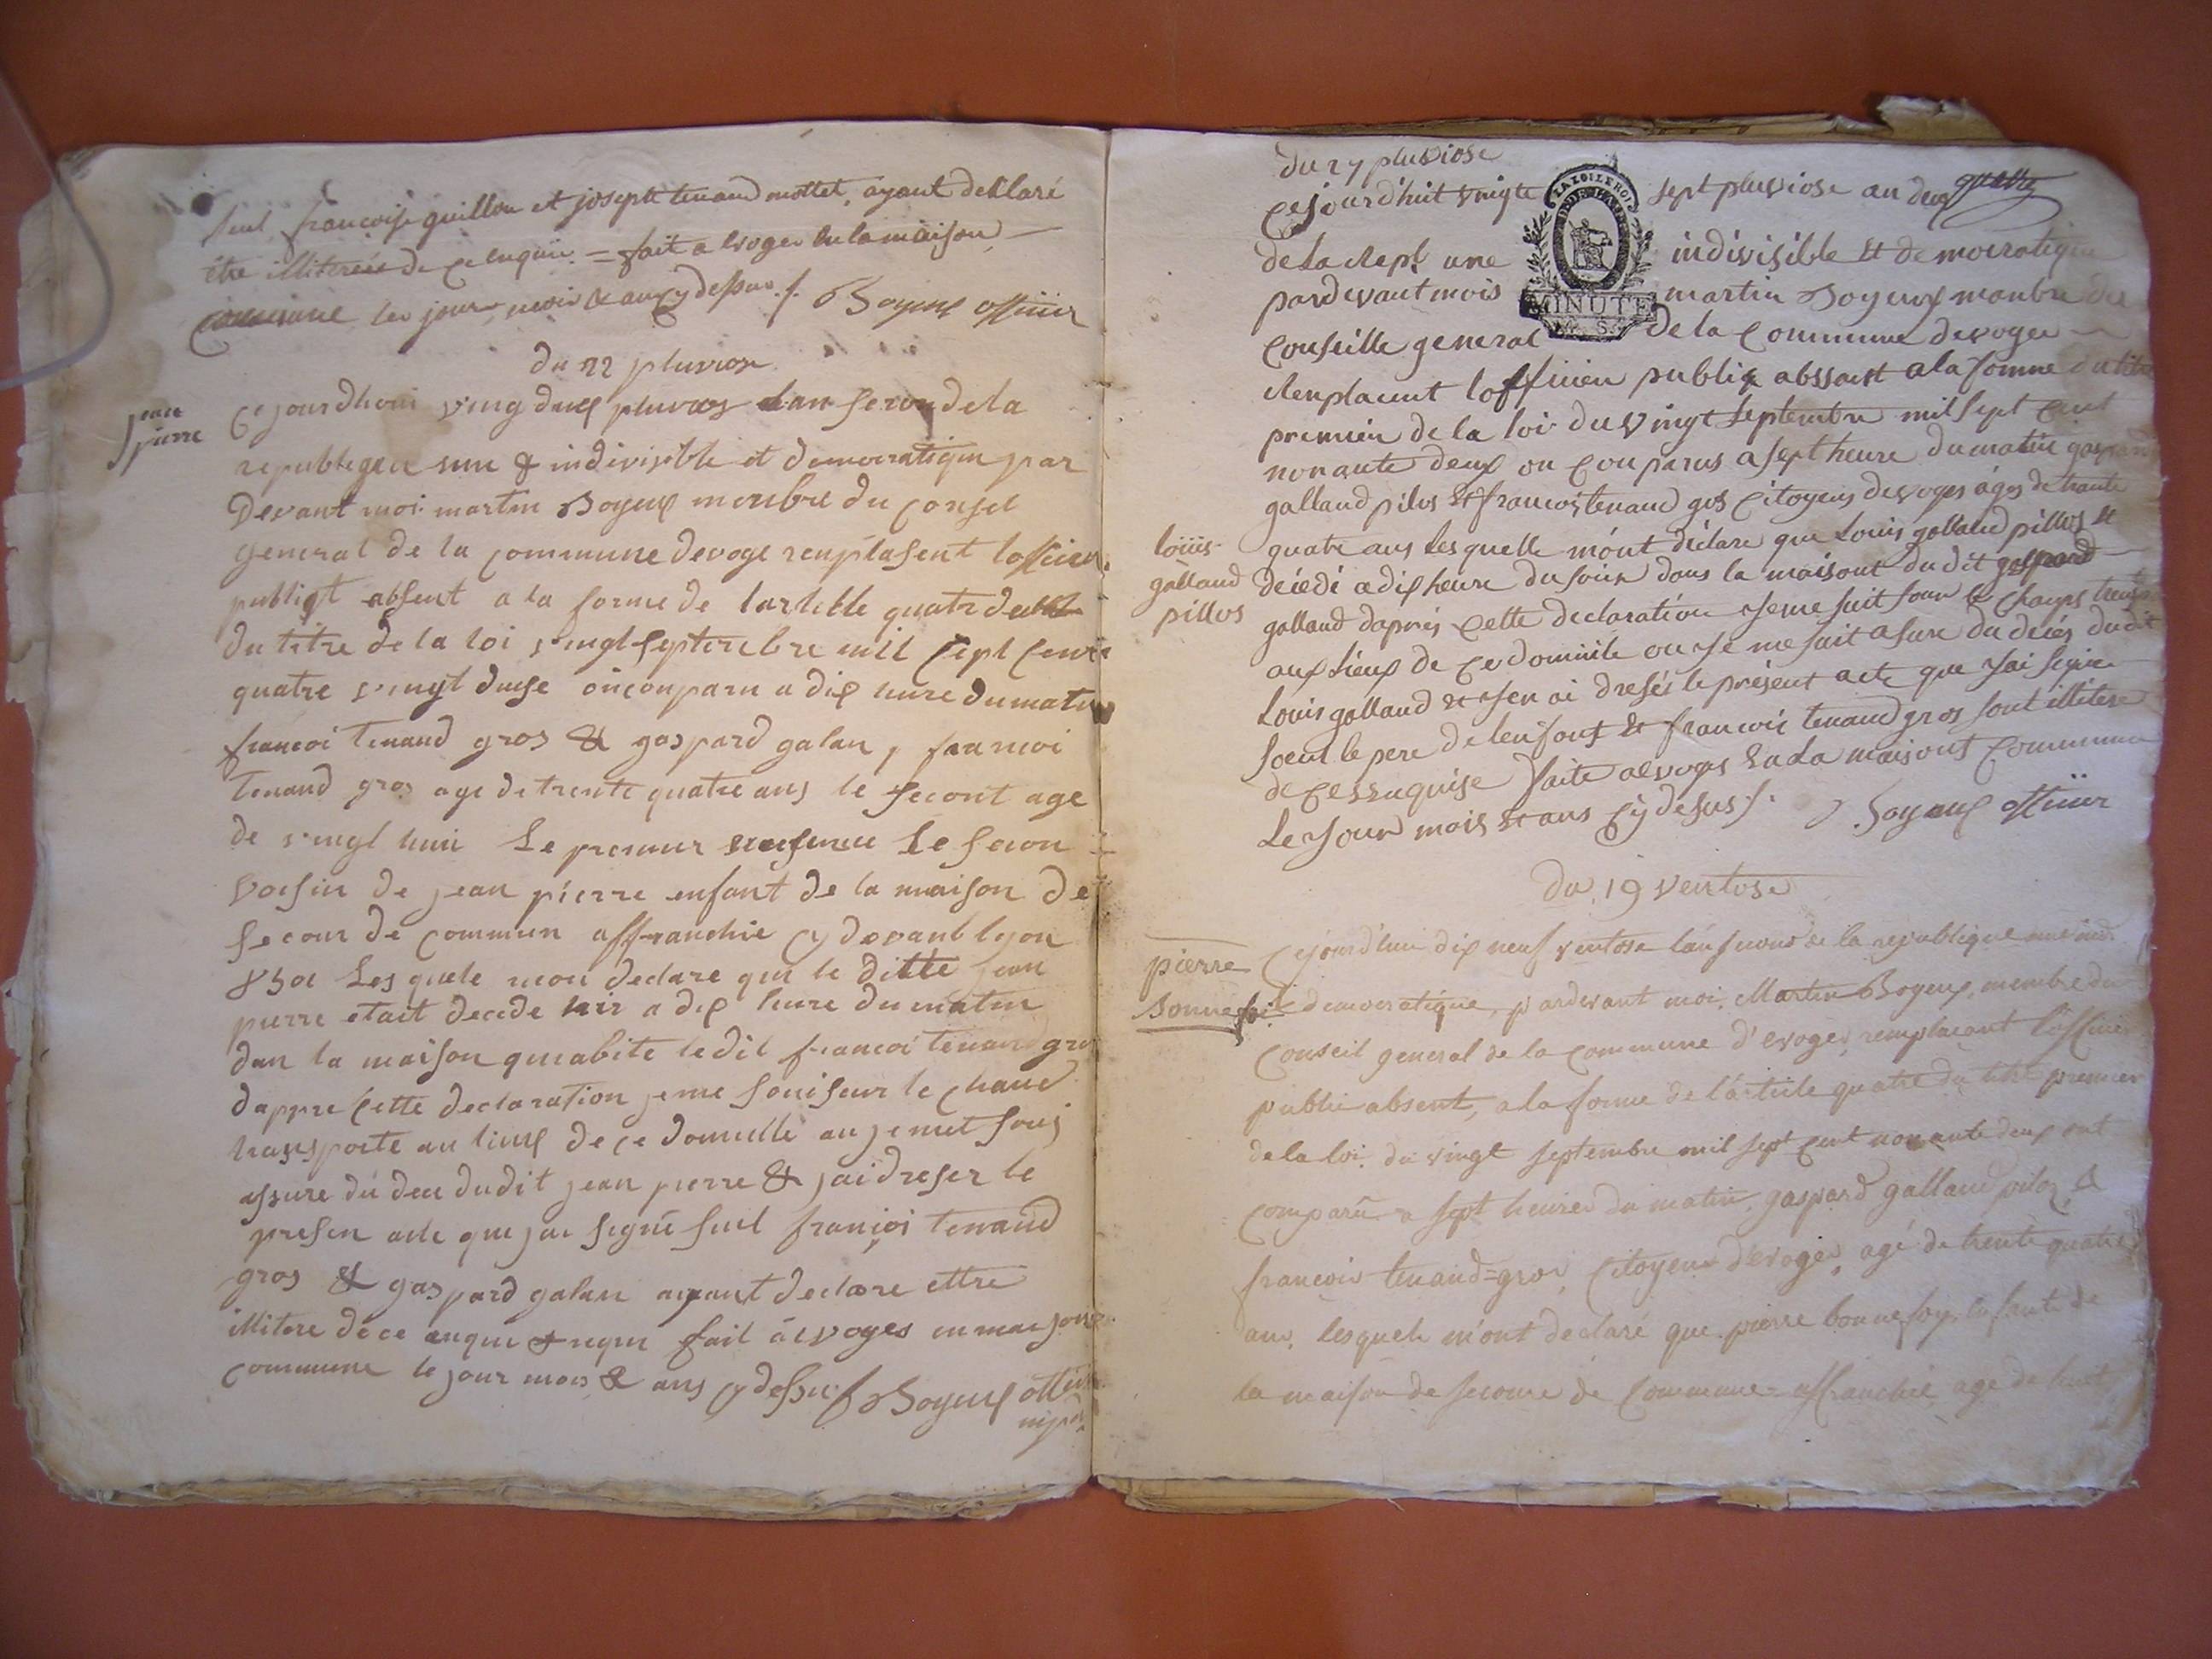 seul françoise guillon et joseph tenand mottet, ayant declaré
être illiterée de ce enquie = fait a evoges en la maison
commune les jour, mois & an cy dessus ./. Boyeux officier
du 22 pluviose
jean
pierre
Cejourdhoui vingdeux pluvios lan second de la
republique une & indivisible et democratique par
Devant moi martin Boyeux membre du consel
general de la commune devoge remplasent lofficier
publiqt absent a la forme de lartickle quatr
du titre de la loi vingt septenbre mil sept cent
quatre vingt duse on conparu a dix heure du matin
francoi tenand gros & gaspard galan, francoi
tenand gros age de trente quatre ans le secont age
de vingt huui Le premier Le secon
voesin de jean pierre enfant de la maison de
secour de commun affranchie cy devant lyon
Les quele mon declare que le ditte jean
pierre etait decede hier a dix heure du matin
dan la maison que abite ledit francoi tenand gro
dappre cette declaration je me soui sur le chand
transporte au lieux de ce domicille
assure du dece dudit jean pierre & jai dreser le
presen acte que jai segne seul françoi tenand
gros & gaspard galan ayant declare ettre
illitere de ce enqui & requi fait a evoges en maison
commune le jour mois & ans cy dessu Boyeux
du 27 pluviose
cejourd'huit vingte sept pluviose an deux
LA LOI LE ROI
MINUTE
de la Rept une indivisible et democratique
pardevant mois martin Boyeux manbre du
Conseille general de la Commune devoge
Renplacent loffisieu publiq abssant a la forme du titre
premier de la loi du vingt septembre mil sept cent
nonante deux on Conparus a sept heure du matin gaspard
galland pilos et francois tenand gos Citoyens devoges ages de trante
quatre ans lesquelle m'ont declare que Louis galland pillos et
louis
galland
pillos
decedé a dix heure du soir dans la maisont du dit gaspard
galland daprés cette declaration je me suit sour le chanps
aux Lieux de ce domicile ou je me suit asure du decés dudit
Louis galland et jen ai dresés le présent acte que jai signe
soeul le pere de lenfant et francoic tenand gros sont illitere
de ce enquise faite a evoges en la maisont Commune
Le jour mois et ans cy desus ./. Boyeux officier
du 19 ventose
pierre
Bonnefoi
Cejourd'hui dix neuf ventose l'an second de la republique une ind.
democratique, pardevant moi, Martin Boyeux, membre du
conseil general de la commune d'evoges, remplacant l'officier
public absent, a la forme de l'article quatre du titre premier
de la loi du vingt septembre mil sept cent nonante deux ont
comparu a sept heures du matin, gaspard galland piloz &
francois tenand=gros, Citoyens d'evoges, agé de trente quatre
ans, lesquels m'ont declaré que pierre bonnefoy, enfant de
la maison de secours de Commune=affranchie, age de huit